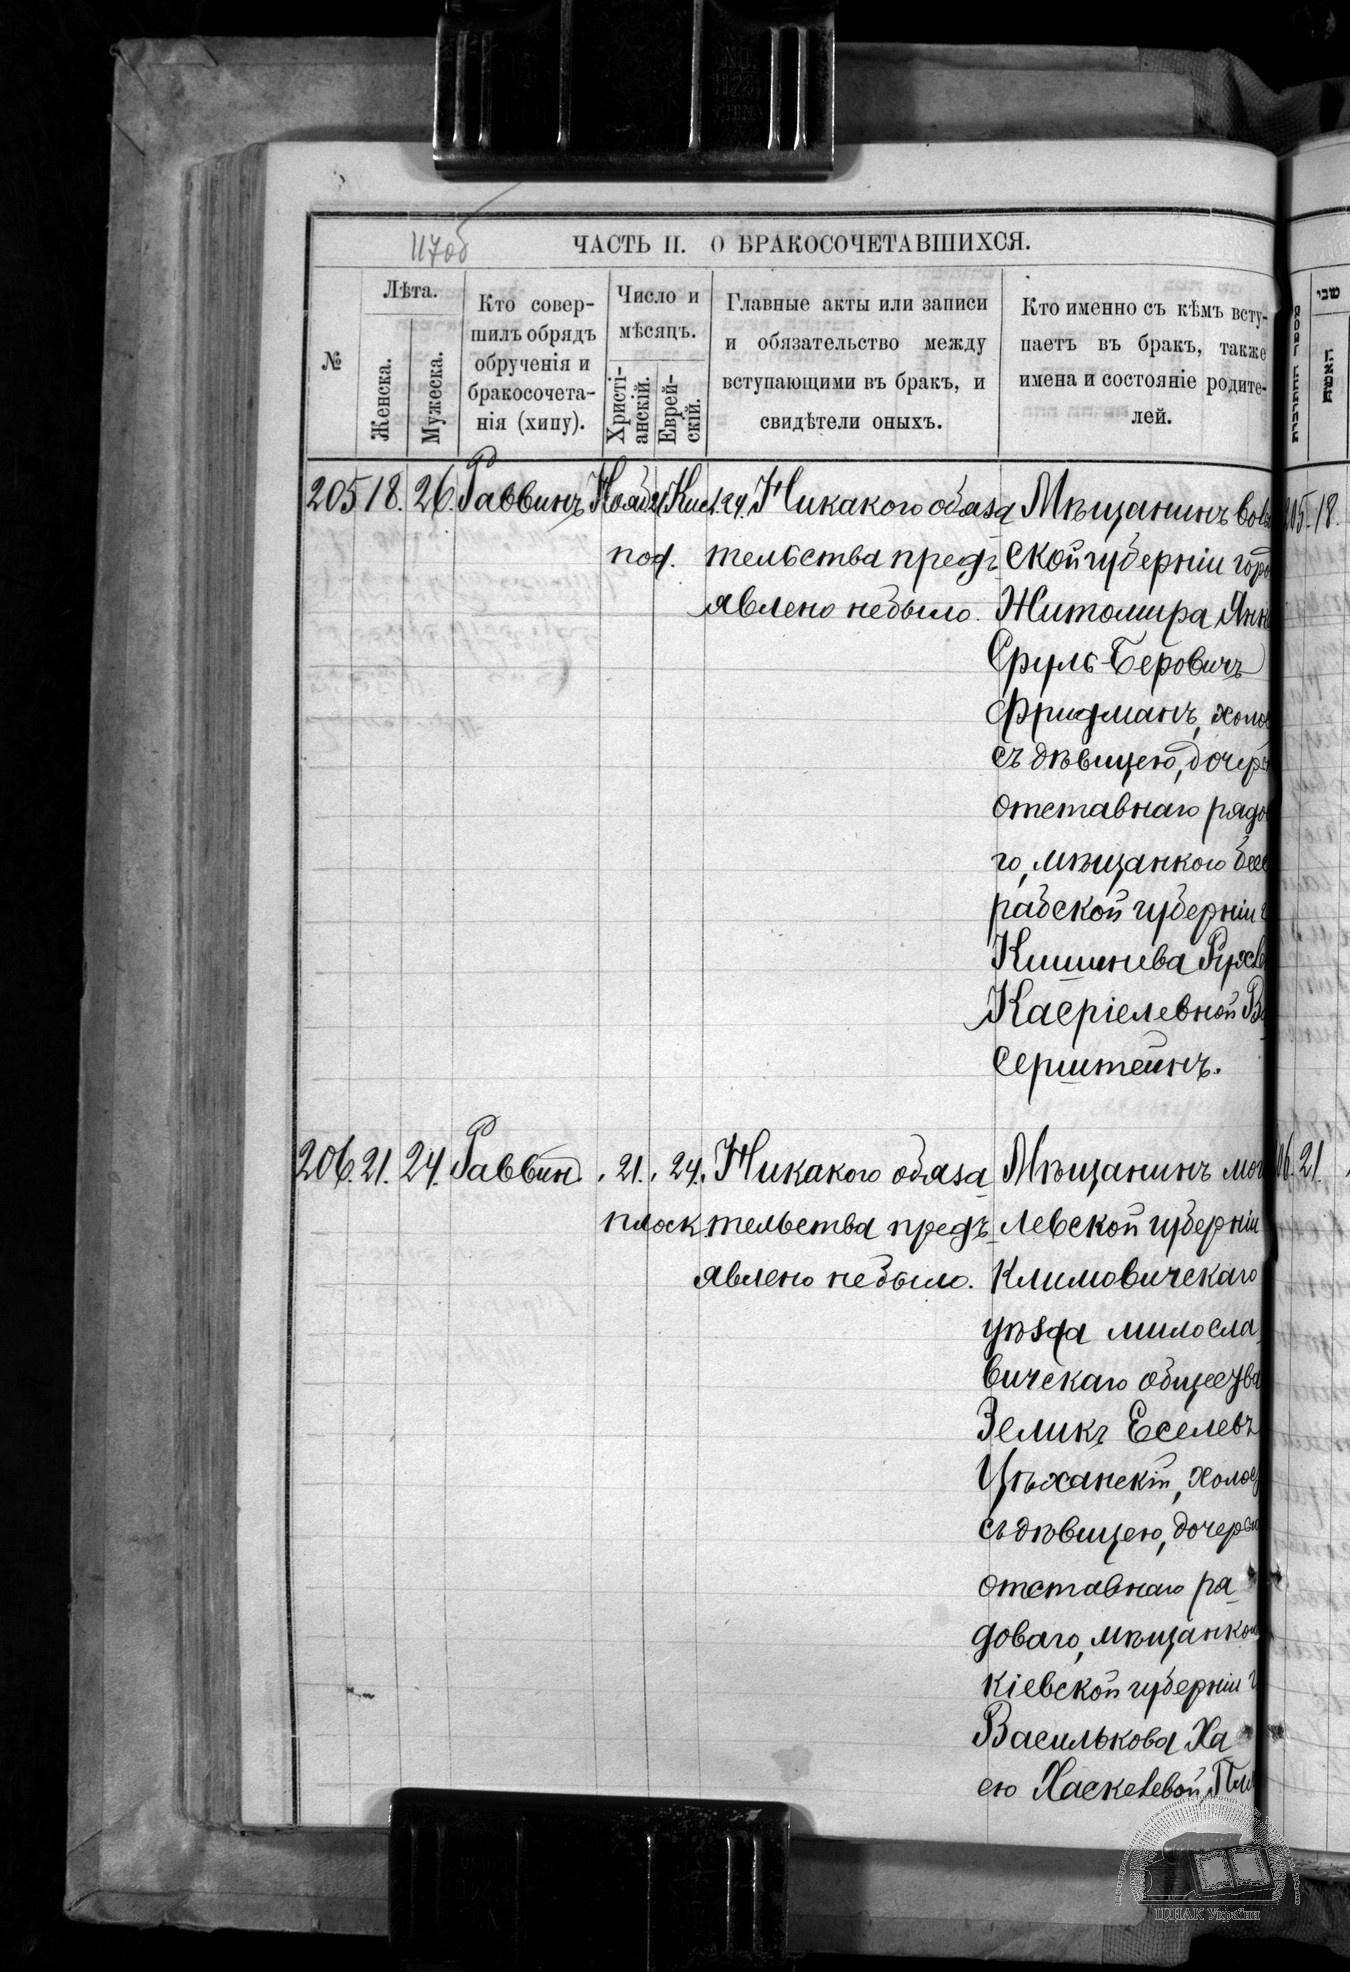 117об
ЧАСТЬ II. О БРАКОСОЧЕТАВШИХСЯ.
№
Лѣта.
Женска.
Мужеска.
Кто совер-
шилъ обрядъ
обрученія и
бракосочета-
нія (хипу).
Число и
мѣсяцъ.
Христі-
анскій.
Еврей-
скій.
Главные акты или записи
и обязательство между
вступающими въ бракъ, и
свидѣтели оныхъ.
Кто именно съ кѣмъ всту-
паетъ въ бракъ, также
имена и состояніе родите-
лей.
205 18. 26. Раввинъ Нояб 21 Кисл. 24. Никакого обяза
тельства предъ
явлено небыло.
под.
Мѣщанинъ
ской губерніи
Житомира
Сруль-Беровичъ
Фридманъ,
съ дѣвицею,
отставнаго
го, мѣщанкою
рабской губерніи
Кишинева
Касріелевной
серштейнъ.
206. 21. 24. Раввин. 21. 24. Никакого обяза
тельства предъ
явлено небыло.
плоск
Мѣщанинъ
левской губерніи
Климовичскаго
уѣзда милосла
вичскаго
Зеликъ Еселевъ
Цѣханскій,
съ дѣвицею,
отставнаго ря
доваго,
кіевской губерніи
Василькова Ха
ею Хаскелевой
שני
האשה
205. 18.
21.
ЦДІАК України